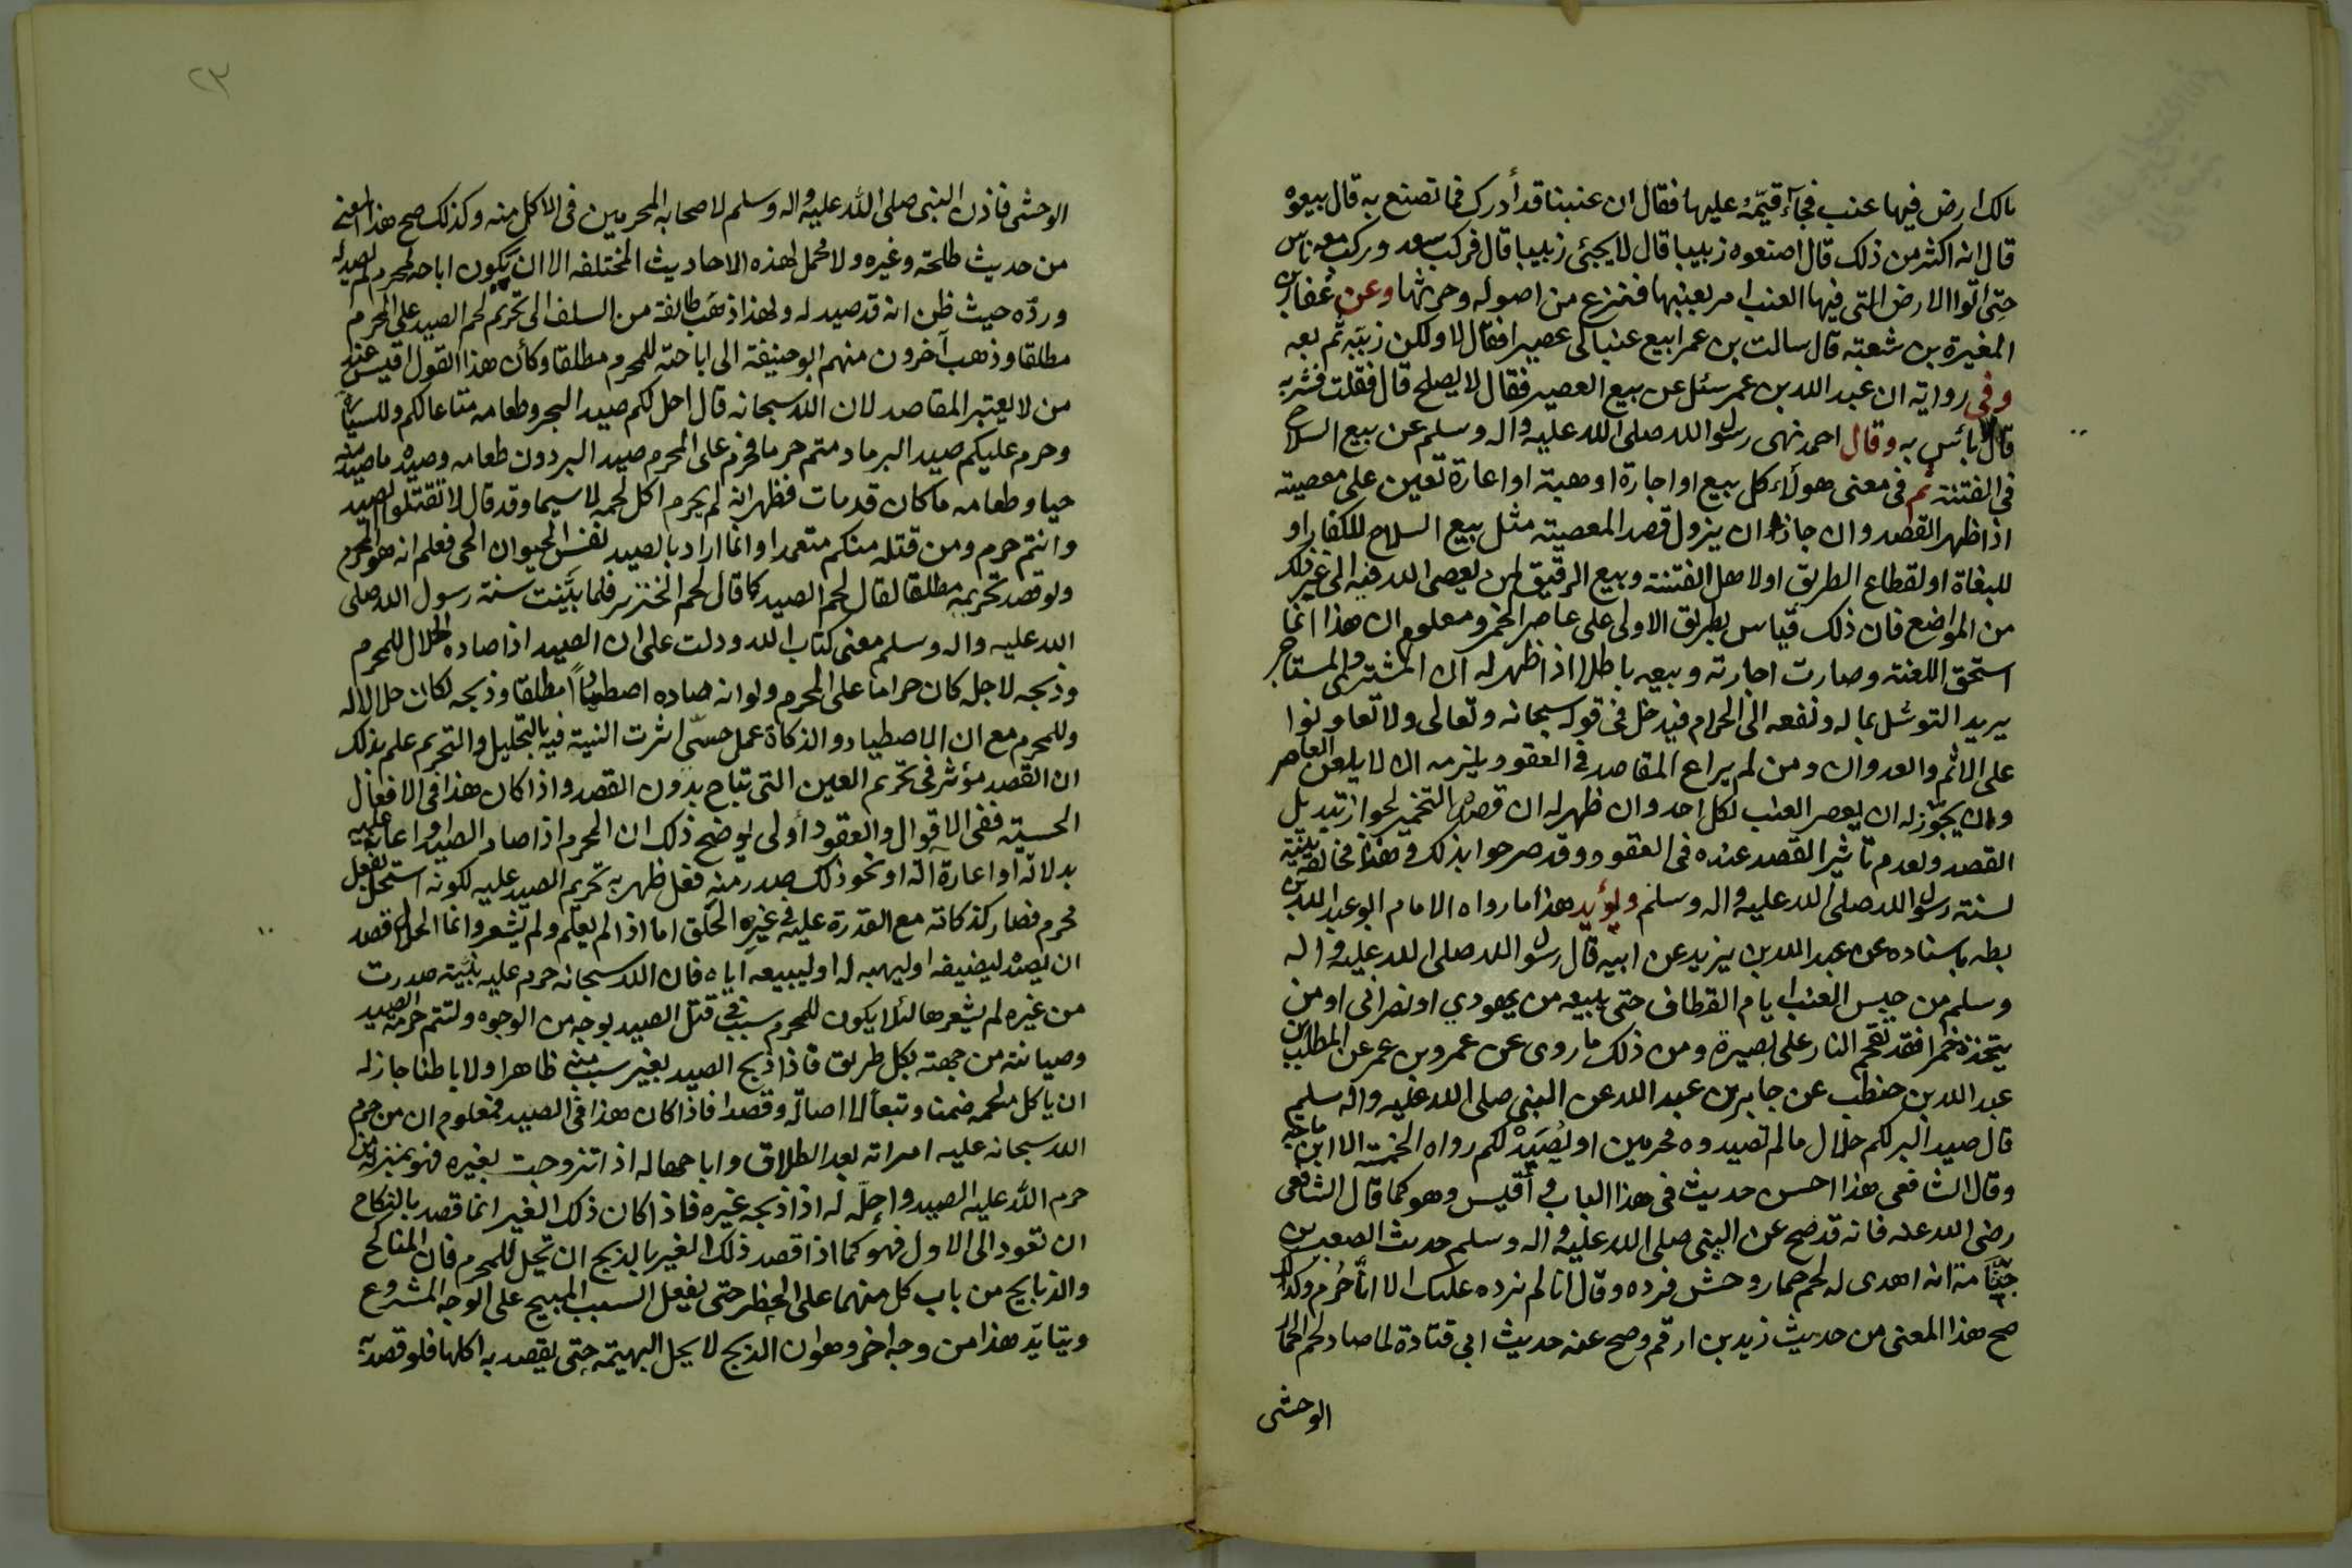 مالك ارض فيها عنب فجآء قيّمُه عليها فقال ان عنبنا قد أدرك فما تصنع به قال بيعوه
قال انه اكثر من ذلك قال اصنعوه زبيبا قال لا يجئى زبيبا قال فركب سعد وركب معه ناس
حتى اتوا الارض التى فيها العنب امر بعنبها فنزع من اصوله وحرثها وعن عفار بن
المغيرة بن شعبة قال سالت بن عمر ابيع عنبا لى عصيرا فقال لا ولكن زبّبه ثم بعه
وفى رواية ان عبد الله بن عمر سئل عن بيع العصير فقال لا يصلح قال فقلت فشربه
قال لا بائس به وقال احمد نهى رسول الله صلى الله عليه واله وسلم عن بيع السلاح
فى الفتنة ثم فى معنى هولاء كل بيع او اجارة او هبة او اعارة تعين على معصيته
اذا ظهر القصد وان جاز ان يزول قصد المعصية مثل بيع السلاح للكفار او
للبغاة او لقطاع الطريق او لاهل الفتنة وبيع الرقيق لمن يعصى الله فيه الى غير ذلك
من المواضع فان ذلك قياس بطريق الاولى على عاصر الخمر ومعلوم ان هذا انما
استحق اللعنة وصارت اجارته وبيعه باطلا اذا ظهر له ان المشترى والمستاجر
يريد التوسّل بماله ونفعه الى الحرام فيدخل فى قوله سبحانه وتعالى ولا تعاونوا
على الاثم والعدوان ومن لم يراع المقاصد فى العقود يلزمه ان لا يلعن العاصر
وان يجوّز له ان يعصر العنب لكل احد وان ظهر له ان قصده التخمير لجواز تبديل
القصد ولعدم تاثير القصد عنده فى العقود وقد صرحوا بذلك وهذا مخالفة بينة
لسنة رسول الله صلى الله عليه واله وسلم ويؤيد هذا ما رواه الامام ابو عبد الله بن
بطه باسناده عن عبد الله بن يزيد عن ابيه قال رسول الله صلى الله عليه واله
وسلم من حبس العنب ايام القطاف حتى يبيعه من يهودي او نصرانى او من
يتخذه خمرا فقد تقحم النار على بصيرة ومن ذلك ما روى عن عمرو بن عمر عن المطلب بن
عبد الله بن حنطب عن جابر بن عبد الله عن النبى صلى الله عليه واله سليم
قال صيد البر لكم حلال ما لم تصيدوه محرمين او يُصَيَدْ لكم رواه الخمسة الا ابن ماجه
وقال الشافعى هذا احسن حديث فى هذا الباب وأقيس وهو كما قال الشافعى
رضى الله عنه فانه قد صح عن النبى صلى الله عليه واله وسلم حديث الصعب بن
جثّامة انه اهدى له لحم حمار وحش فرده وقال انا لم نرده عليك الا انّا حُرُم وكذلك
صح هذا المعنى من حديث زيد بن ارقم وصح عنه حديث ابى قتادة لما صاد لحم الحمار
الوحشى
٢٣
الوحشى فاذن النبى صلى الله عليه واله وسلم لاصحابه المحرمين فى الاكل منه وكذلك صح هذا المعنى
من حديث طلحة وغيره ولا محمل لهذه الاحاديث المختلفه الا ان يكون اباحه لمحرم لم يصد له
وردّه حيث ظن انه قد صيد له ولهذا ذهَب طائفة من السلف الى تحريم لحم الصيد على المحرم
مطلقا وذهب آخرون منهم ابو حنيفة الى اباحته للمحرم مطلقا وكأن هذا القول اقيس عند
من لا يعتبر المقاصد لان الله سبحانه قال احل لكم صيد البحر وطعامه متاعا لكم وللسيارة
وحرم عليكم صيد البر ما دمتم حرما فحرم على المحرم صيد البر دون طعامه وصيده ما صيد منه
حيا وطعامه ما كان قد مات فظهر انه لم يحرم اكل لحمه لا سيما وقد قال لا تقتلوا الصيد
وانتم حرم ومن قتله منكم متعمدا وانما اراد بالصيد نفس الحيوان الحى فعلم انه هو المحرم
ولو قصد تحريمه مطلقا لقال لحم الصيد كما قال لحم الخنزير فلما بَيَّنت سنة رسول الله صلى
الله عليه واله وسلم معنى كتاب الله ودلت على ان الصيد اذا صاده الحلال للمحرم
وذبحه لاجله كان حراما على المحرم ولو انه صاده اصطيادًا مطلقا وذبحه لكان حلالا له
وللمحرم مع ان الاصطياد والذكاة عمل حسّى اثرت النية فيه بالتحليل والتحريم علم بذلك
ان القصد مؤثر فى تحريم العين التى تباح بدون القصد واذا كان هذا فى الافعال
الحسية ففى الاقوال والعقود أولى يوضح ذلك ان المحرم اذا صاد الصيد او اعان عليه
بدلالة او اعارة الة او نحو ذلك صدر منه فعل ظهر به تحريم الصيد عليه لكونه استحل بفعل
محرم فصار كذكاته مع القدرة عليه فى غير الحلق اما اذا لم يعلم ولم يشعر وانما الحلال قصد
ان يصيده ليضيفه او ليهبه له او ليبيعه اياه فان الله سبحانه حرم عليه بنيّة صدرت
من غيره لم يشعر بها لئلا يكون للمحرم سبب فى قتل الصيد بوجه من الوجوه ولتتم حرمة الصيد
وصيانته من جهته بكل طريق فاذا ذبح الصيد بغير سبب منه ظاهرا ولا باطنا جاز له
ان ياكل لحمه ضمنا وتبعا لا اصالة وقصدا فاذا كان هذا فى الصيد فمعلوم ان من حرم
الله سبحانه عليه امراته بعد الطلاق واباحها له اذا تزوجت بغيره فهو بمنزلة من
حرم الله عليه الصيد واحلّه له اذا ذبحه غيره فاذا كان ذلك الغير انما قصد بالنكاح
ان تعود الى الاول فهو كما اذا قصد ذلك الغير بالذبح ان تحل للمحرم فان المناكح
والذبايح من باب كل منهما على الحظر حتى يفعل السبب المبيح على الوجه المشروع
ويتايّد هذا من وجه اخر وهو ان الذبح لا يحل البهيمة حتى يقصد به اكلها فلو قصد به